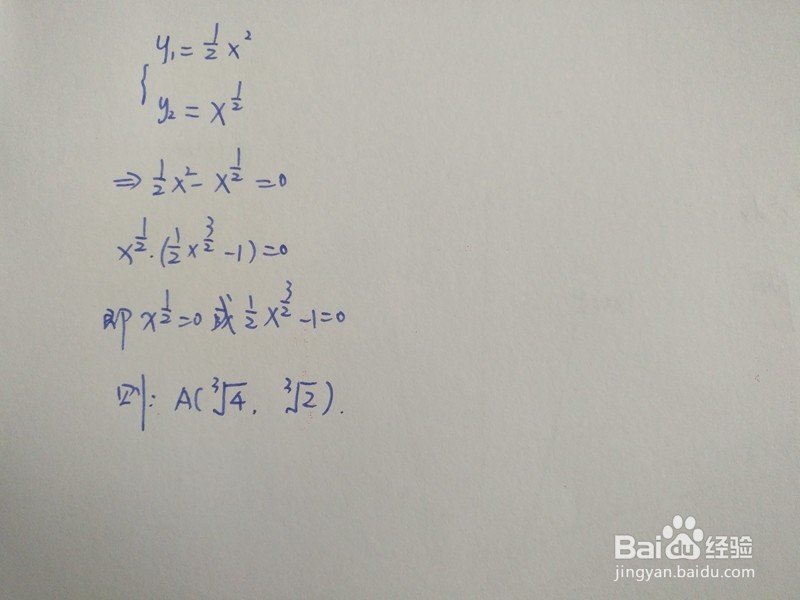 { y₁ = 1/2 x²
y₂ = x^(1/2)
⇒ 1/2 x² - x^(1/2) = 0
x^(1/2) · (1/2 x^(3/2) - 1) = 0
即 x^(1/2) = 0 或 1/2 x^(3/2) - 1 = 0
则: A(³√4, ³√2).
Baidu 经验
jingyan.baidu.com